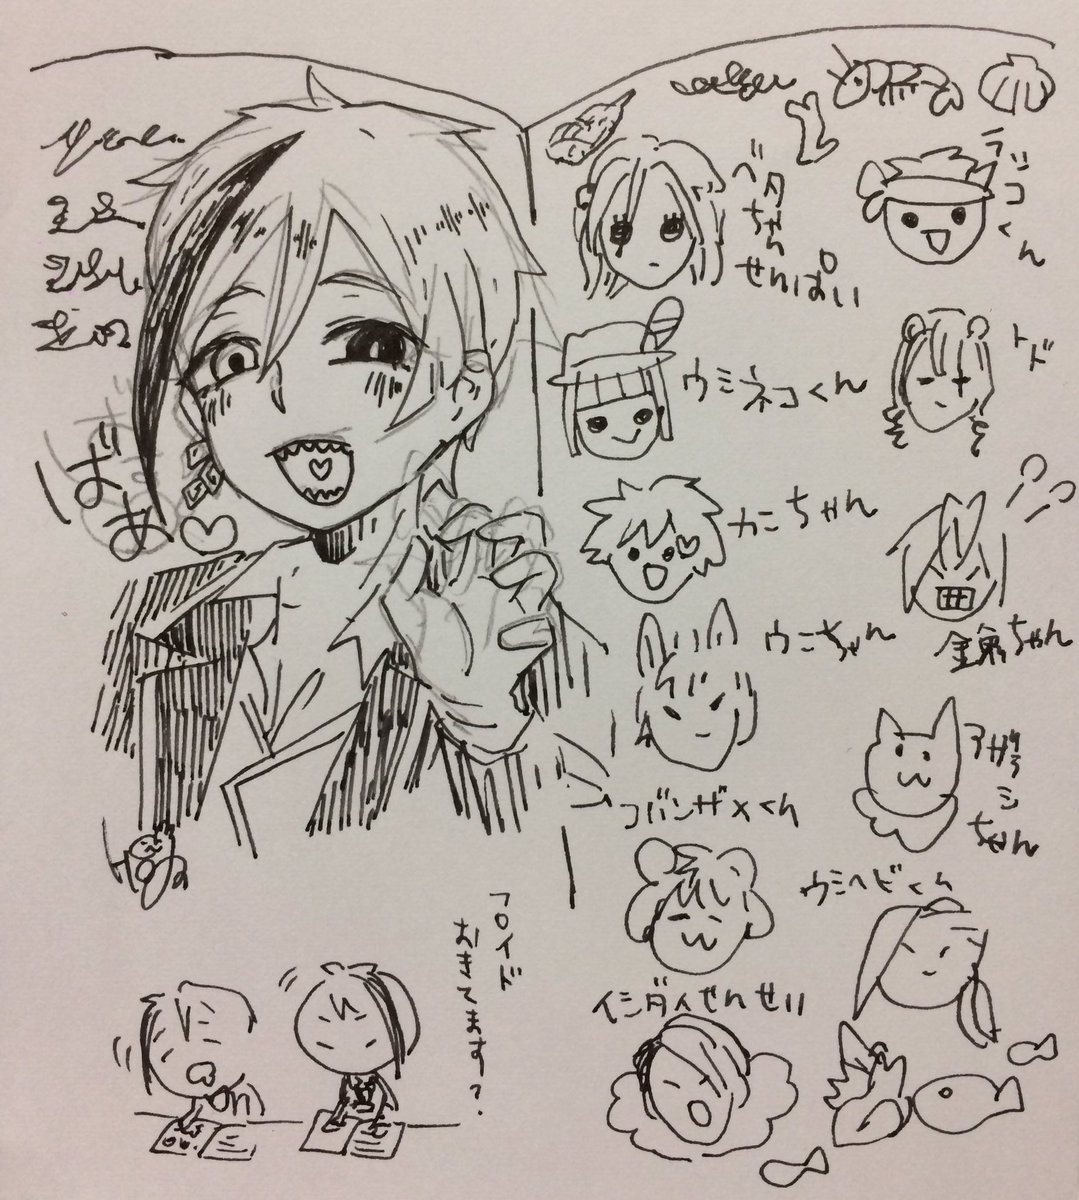 ばあ♡
ベタちゃん
せんぱい
ラッコくん
ウミネコくん
トド
カニちゃん
ウニちゃん
金魚ちゃん
コバンザメくん
アザラシ
ちゃん
ウミヘビくん
イシダイせんせい
フロイド
おきてます?